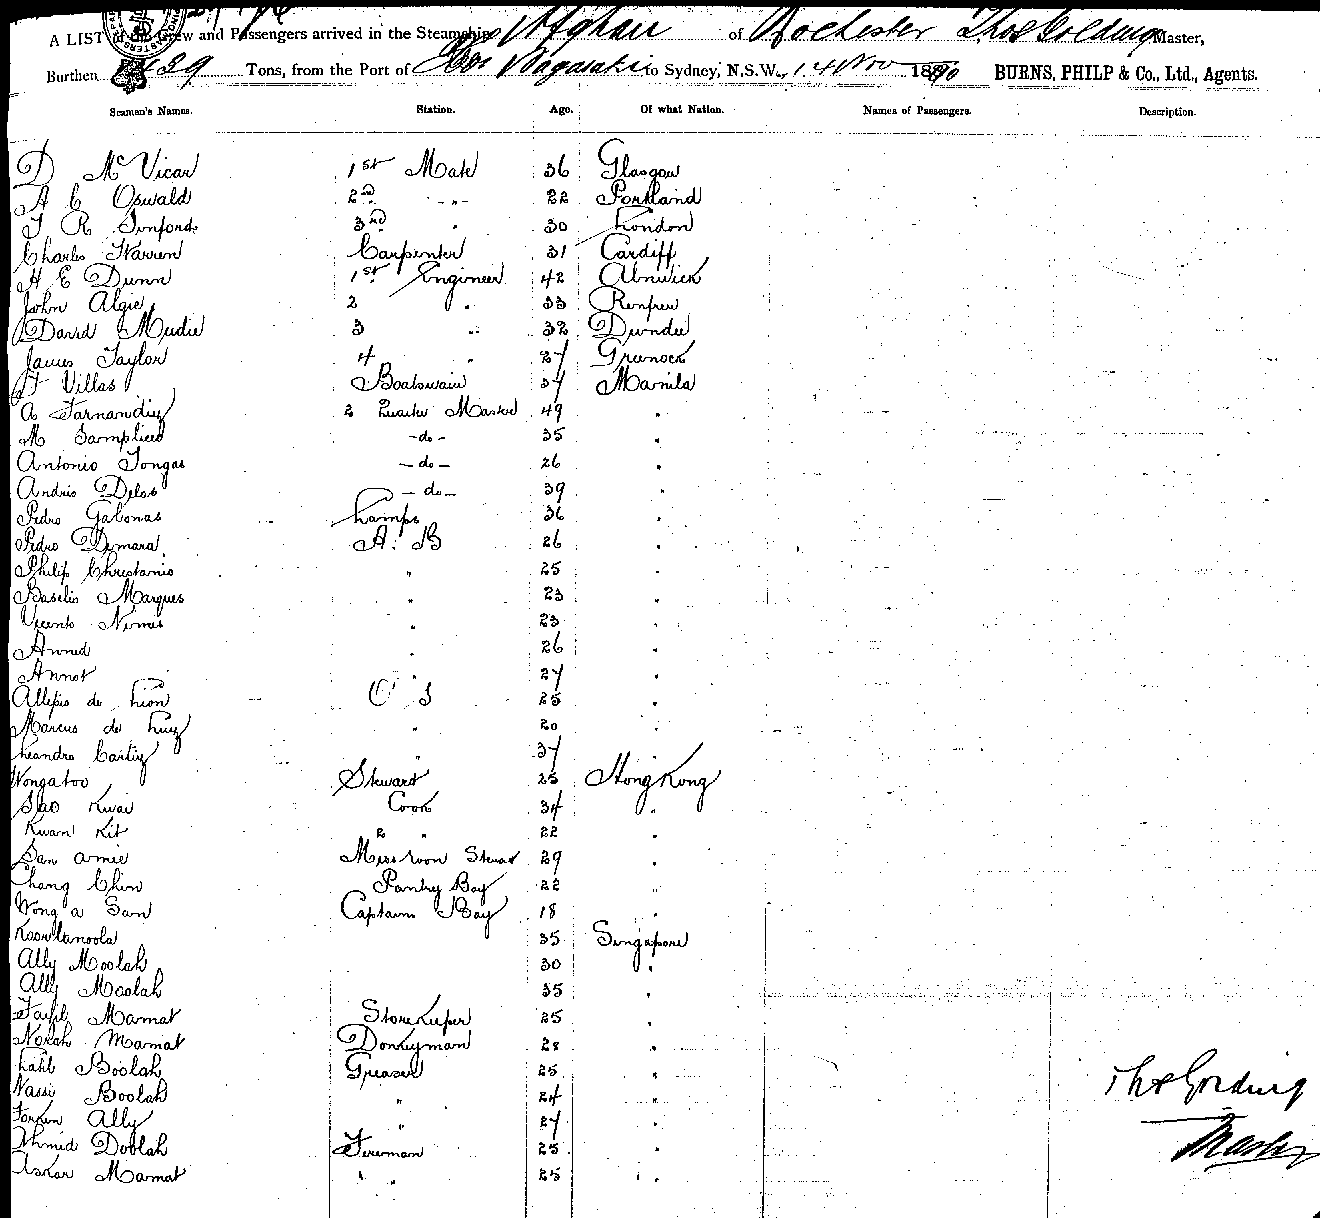 A LIST of the Crew and Passengers arrived in the Steamship Afghan of Rochester Thos Golding Master,
Burthen 1439 Tons, from the Port of Nagasaki to Sydney, N.S.W., 14 Nov 1890 BURNS, PHILP & Co., Ltd., Agents.
Seaman's Names. Station. Age. Of what Nation. Names of Passengers. Description.
D McVicar 1st Mate 36 Glasgow
A C Oswald 2nd -"- 22 Portland
T R Sinfords 3rd " 30 London
Charles Warren Carpenter 31 Cardiff
H E Dunn 1st Engineer 42 Alnwick
John Algie 2 " 33 Renfrew
David Mudie 3 " 32 Dundee
James Taylor 4 " 27 Greenock
F Villas Boatswain 37 Manila
A Farnandiz 2 Quarter Master 49 "
M Sampliced -do- 35 "
Antonio Tongas -do- 26 "
Andrio Delos -do- 39 "
Pedro Gabonas Lamps 36 "
Pedro Dumara A. B 26 "
Philip Christanio " 25 "
Baselio Marques " 23 "
Vicento Nimes " 23 "
Anned " 26 "
Annot " 27 "
Allepio de Lion O S 25 "
Marcus de Luiz " 20 "
Leandro Cartiz " 37 "
Wongatoo Steward 25 Hong Kong
Sao Kwai Cook 34 "
Kwan Kit 2 " 22 "
San amie Messroom Steward 29 "
Chang Chin Pantry Boy 22 "
Wong a San Captains Boy 18 "
Koorlanoola 35 Singapore
Ally Moolah 30 "
Ally Moolah 35 "
Taipl Mamat Storekeeper 25 "
Norah Mamat Donkeyman 28 "
Lahl Boolah Greaser 25 "
Nassi Boolah " 24 "
Forkin Ally " 27 "
Ahmid Doolah Fireman 25 "
Askar Mamat " " 25 "
Thos Golding
Master